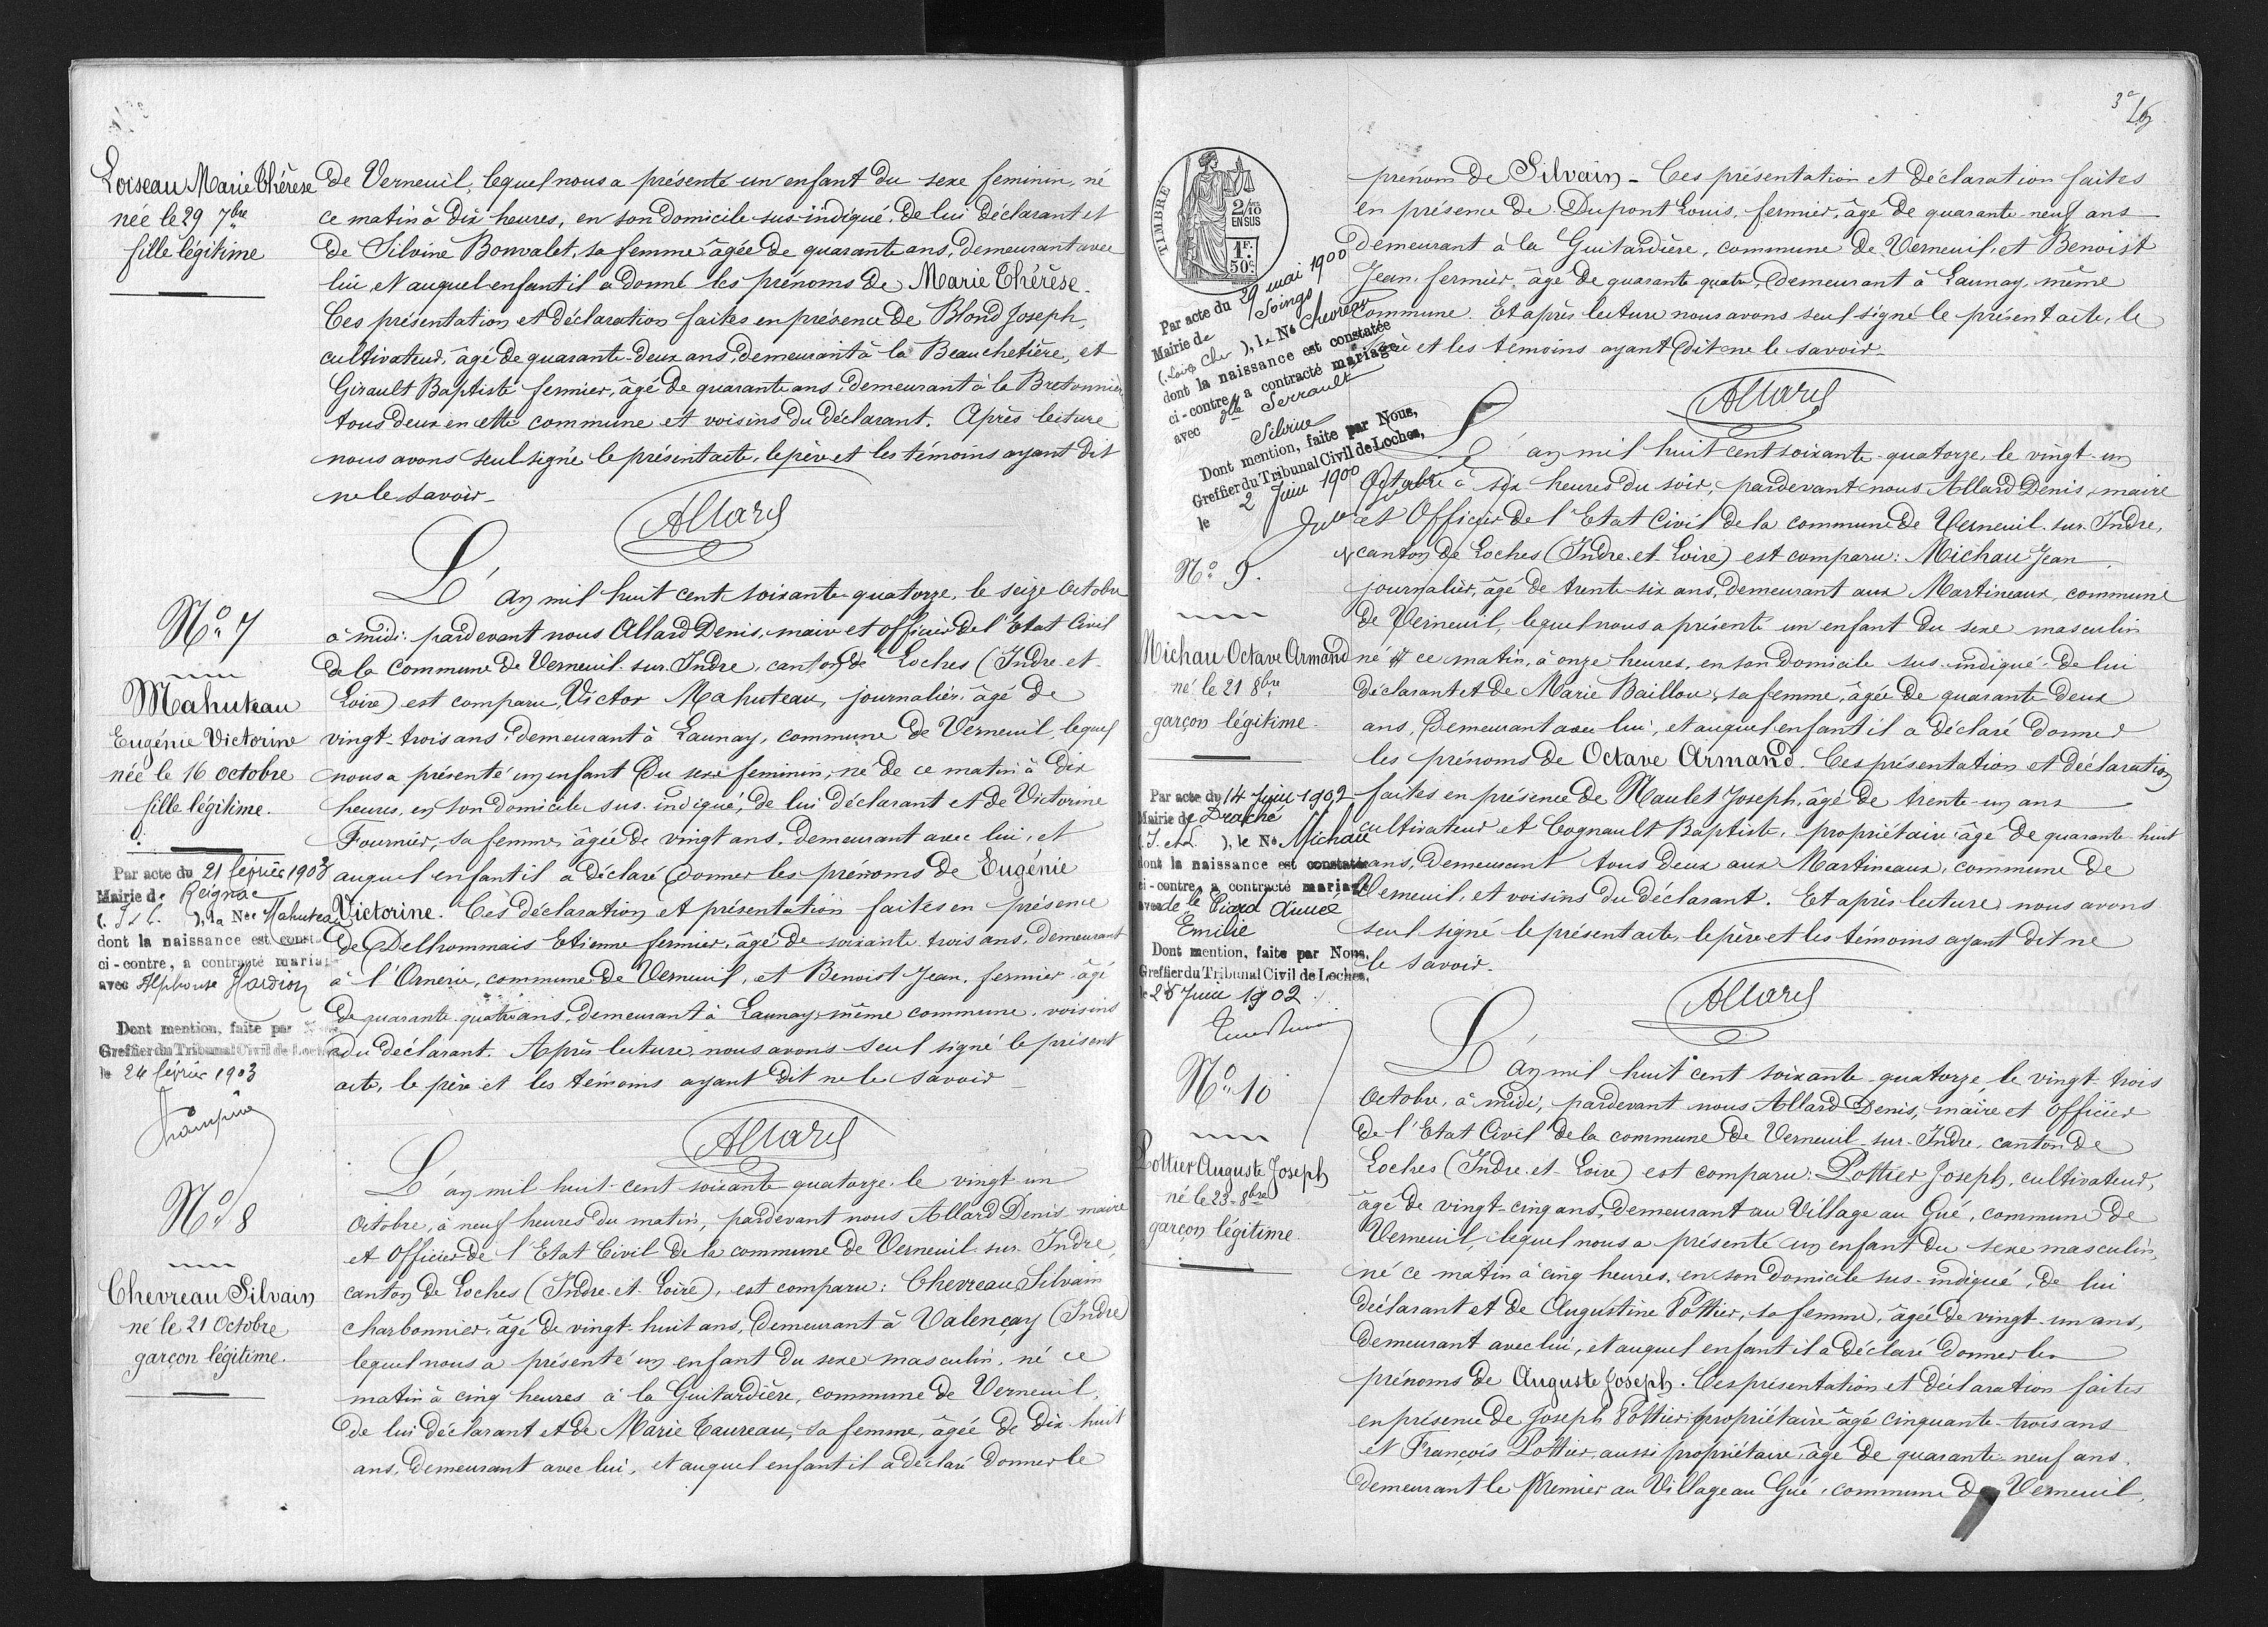 Loiseau Marie Thérèse
née le 29 7bre
fille légitime
de Verneuil, lequel nous a présenté un enfant du sexe feminin, né
ce matin à dix heures, en son domicile sus-indiqué, de lui déclarant et
de Silvine Bonvalet, sa femme âgée de quarante ans, demeurant avec
lui, et auquel enfant il a donné les prénoms de Marie Thérèse.
Ces présentation et déclaration faites en présence de Blond Joseph,
cultivateur, âgé de quarante-deux ans demeurant à la Beauchetière, et
Girault Baptiste fermier, âgé de quarante ans demeurant à la Bretonnière
tous deux en cette commune et voisins du déclarant. Après lecture
nous avons seul signé le présent acte, le père et les témoins ayant dit
ne le savoir.
Allard
No 7
Mahuteau
Eugénie Victorine
née le 16 octobre
fille légitime.
Par acte du 21 février 1903
Mairie de Reignac
(I & L. ), la Née Mahuteau
dont la naissance est const
ci-contre, a contracté maria
avec Alphonse Hardion
Dont mention, faite par
Greffier du Tribunal Civil de Loches
le 24 février 1903
L'an mil huit cent soixante-quatorze, le seize octobre
à midi: pardevant nous Allard Denis, maire et officier de l'Etat Civil
de la Commune de Verneuil-sur-Indre, canton de Loches (Indre-et-
Loire) est comparu, Victor Mahuteau, journalier, âgé de
vingt-trois ans, demeurant à Launay, commune de Verneuil, lequel
nous a présenté un enfant du sexe feminin, né de ce matin à dix
heures, en son domicile sus-indiqué, de lui déclarant et de Victorine
Fournier, sa femme, âgée de vingt ans, demeurant avec lui, et
auquel enfant il a déclaré donner les prénoms de Eugénie
Victorine. Ces déclaration et présentation faites en présence
de Delhommais Etienne fermier, âgé de soixante trois ans, demeurant
à l'Ornerie, commune de Verneuil, et Benoist Jean, fermier âgé
de quarante-quatre ans, demeurant à Launay même commune, voisins
du déclarant. Après lecture, nous avons seul signé le présent
acte, le père et les témoins ayant dit ne le savoir
Allard
No 8
Chevreau Silvain
né le 21 Octobre
garçon légitime.
L'an mil huit-cent soixante-quatorze, le vingt-un
octobre, à neuf heures du matin, pardevant nous Allard Denis maire
et Officier de l'Etat Civil de la commune de Verneuil-sur-Indre,
canton de Loches (Indre-et-Loire), est comparu: Chevreau Silvain
charbonnier, âgé de vingt-huit ans, demeurant à Valençay (Indre)
lequel nous a présenté un enfant du sexe masculin, né ce
matin à cinq heures à la Guitardière, commune de Verneuil,
de lui déclarant et de Marie Taureau, sa femme, âgée de dix-huit
ans, demeurant avec lui, et auquel enfant il a déclaré donner le
TIMBRE
2/10
EN SUS
1F.
50c
prénom de Silvain - Ces présentation et déclaration faites
en présence de Dupont Louis, fermier, âgé de quarante-neuf ans
demeurant à la Guitardière, commune de Verneuil, et Benoist
Jean, fermier, âgé de quarante quatre, demeurant à Launay, même
commune. Et après lecture nous avons seul signé le présent acte, le
père et les témoins ayant dit ne le savoir.
Allard
Par acte du 29 mai 1900
Mairie de Soings
(Loir & Cher ), le Né Chevreau
dont la naissance est constatée
ci-contre, a contracté mariage
avec Dlle Serrault
Silvine
Dont mention, faite par Nous,
Greffier du Tribunal Civil de Loches,
le 2 Juin 1900
No 9.
Michau Octave Armand
né le 21 8bre
garçon légitime
Par acte du 14 Juin 1902
Mairie de Draché
(I. et L. ), le Né Michau
dont la naissance est constatée
ci-contre, a contracté mariage
avec de lle Picard Aimée
Emilie
Dont mention, faite par Nous,
Greffier du Tribunal Civil de Loches,
le 28 Juin 1902
L'an mil huit cent soixante-quatorze, le vingt-un
Octobre à six heures du soir, pardevant nous Allard Denis, maire
et Officier de l'Etat Civil de la commune de Verneuil-sur-Indre,
canton de Loches (Indre-et-Loire) est comparu: Michau Jean
journalier, âgé de trente six ans, demeurant aux Martineaux, commune
de Verneuil, lequel nous a présenté un enfant du sexe masculin
né ce matin, à onze heures, en son domicile sus-indiqué de lui
déclarant et de Marie Baillou, sa femme, âgée de quarante deux
ans, demeurant avec lui, et auquel enfant il a déclaré donner
les prénoms de Octave Armand. Ces présentation et déclaration
faites en présence de Maulet Joseph, âgé de trente-un ans
cultivateur et Cognault Baptiste, propriétaire âgé de quarante-huit
ans, demeurant tous deux aux Martineaux, commune de
Verneuil, et voisins du déclarant. Et après lecture nous avons
seul signé le présent acte, le père et les témoins ayant dit ne
le savoir.
Allard
No 10
Pottier Auguste Joseph
né le 23 8bre
garçon légitime
L'an mil huit cent soixante-quatorze, le vingt-trois
octobre, à midi, pardevant nous Allard Denis, maire et officier
de l'Etat Civil de la commune de Verneuil-sur-Indre, canton de
Loches (Indre-et-Loire) est comparu: Pottier Joseph, cultivateur,
âgé de vingt-cinq ans, demeurant au Village au Gué, commune de
Verneuil, lequel nous a présenté un enfant du sexe masculin,
né ce matin à cinq heures, en son domicile sus-indiqué, de lui
déclarant et de Augustine Pottier, sa femme, âgée de vingt-un ans,
demeurant avec lui, et auquel enfant il a déclaré donner les
prénoms de Auguste Joseph. Ces présentation et déclaration faites
en présence de Joseph Pottier propriétaire âgé cinquante-trois ans
et François Pottier, aussi propriétaire, âgé de quarante-neuf ans,
demeurant le premier au Village au Gué, commune de Verneuil,